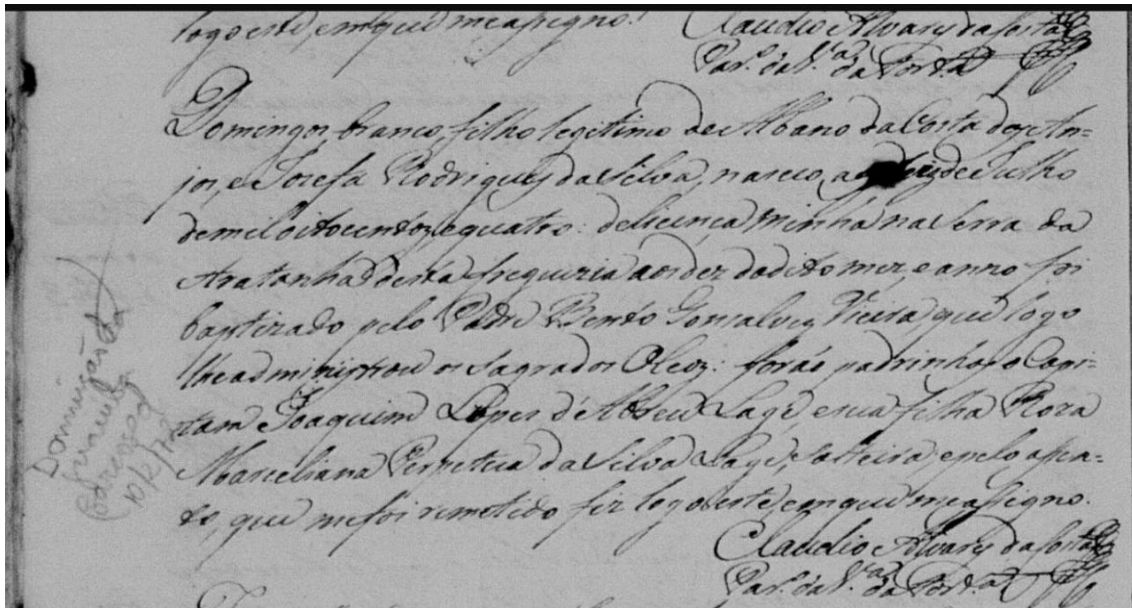 logo este, em que me assigno.
Claudio Alvares da Costa
Par.º da V.ª da Fort.ª
Domingos branco, filho legitimo de Albano da Costa dos An-
jos, e Josefa Rodrigues da Silva, nasceo, a de Julho
de mil oitocentos, e quatro: de licença minha na Serra da
Aratanha desta freguezia aos dez do dito mez, e anno foi
baptizado pelo Padre Bento Gonsalves Vieira, que logo
lhe administrou os Sagrados Oleos: forão padrinhos o Capi-
tam Joaquim Lopes d'Abreu Lage, e sua filha Roza
Marceliana Perpetua da Silva Lage, solteira, e pelo assen-
to, que me foi remetido fiz logo este, em que me assigno.
Claudio Alvares da Costa
Par.º da V.ª da Fort.ª